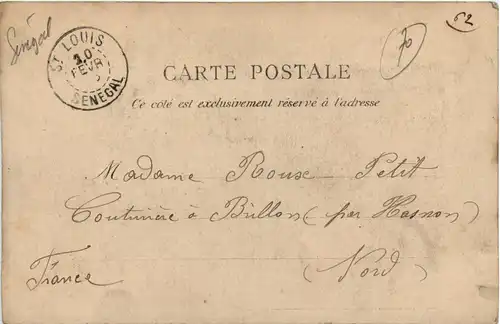 Sénégal
ST LOUIS
20
FEVR
SENEGAL
70
62
CARTE POSTALE
Ce côté est exclusivement réservé à l'adresse
Madame Roux-Petit
Couturière à Brillon (par Hasnon)
(Nord)
France